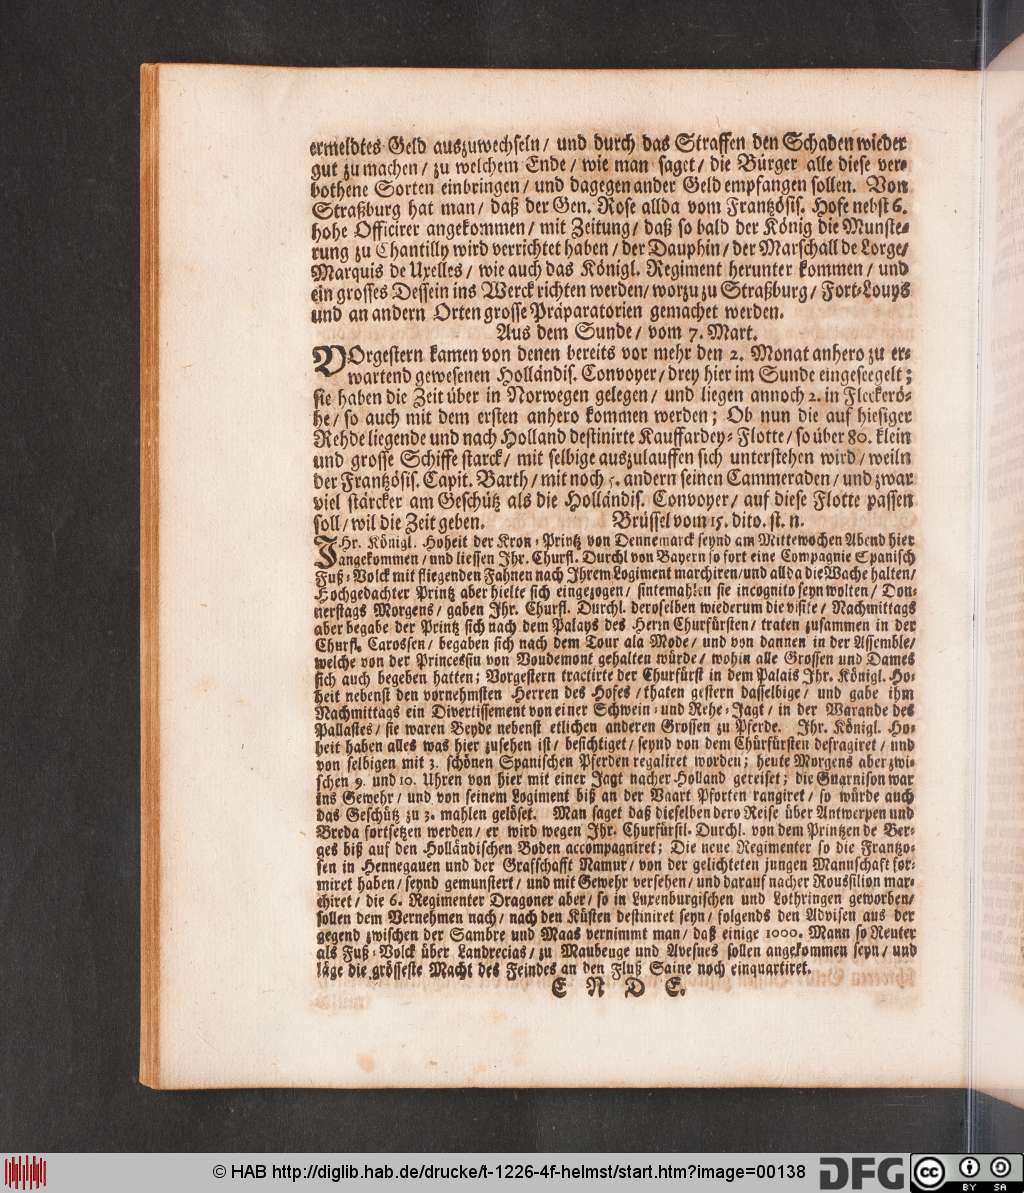 ermeldtes Geld auszuwechseln / und durch das Straffen den Schaden wieder
gut zu machen / zu welchem Ende / wie man saget / die Bürger alle diese ver-
bothene Sorten einbringen / und dagegen ander Geld empfangen sollen. Von
Straßburg hat man / daß der Gen. Rose allda vom Frantzösis. Hofe nebst 6.
hohe Officirer angekommen / mit Zeitung / daß so bald der König die Munste-
rung zu Chantilly wird verrichtet haben / der Dauphin / der Marschall de Lorge /
Marquis de Uxelles / wie auch das Königl. Regiment herunter kommen / und
ein grosses Dessein ins Werck richten werden / worzu zu Straßburg / Fort-Louys
und an andern Orten grosse Präparatorien gemachet werden.
Aus dem Sunde / vom 7. Mart.
VOrgestern kamen von denen bereits vor mehr den 2. Monat anhero zu er-
wartend gewesenen Holländis. Convoyer / drey hier im Sunde eingeseegelt ;
sie haben die Zeit über in Norwegen gelegen / und liegen annoch 2. in Fleckerö-
he / so auch mit dem ersten anhero kommen werden ; Ob nun die auf hiesiger
Rehde liegende und nach Holland destinirte Kauffardey-Flotte / so über 80. klein
und grosse Schiffe starck / mit selbige auszulauffen sich unterstehen wird / weiln
der Frantzösis. Capit. Barth / mit noch 5. andern seinen Cammeraden / und zwar
viel stärcker am Geschütz als die Holländis. Convoyer / auf diese Flotte passen
soll / wil die Zeit geben. Brüssel vom 15. dito. st. n.
IHr. Königl. Hoheit der Kron-Printz von Dennemarck seynd am Mittewochen Abend hier
angekommen / und liessen Ihr. Churfl. Durchl von Bayern so fort eine Compagnie Spanisch
Fuß-Volck mit fliegenden Fahnen nach Ihrem Logiment marchiren / und allda die Wache halten /
Hochgedachter Printz aber hielte sich eingezogen / sintemahlen sie incognito seyn wolten / Don-
nerstags Morgens / gaben Ihr. Churfl. Durchl. deroselben wiederum die visite / Nachmittags
aber begabe der Printz sich nach dem Palays des Herrn Churfürsten / traten zusammen in der
Churfl. Carossen / begaben sich nach dem Tour ala Mode / und von dannen in der Assemble /
welche von der Princessin von Voudemont gehalten würde / wohin alle Grossen und Dames
sich auch begeben hatten ; Vorgestern tractirte der Churfürst in dem Palais Ihr. Königl. Ho-
heit nebenst den vornehmsten Herren des Hofes / thaten gestern dasselbige / und gabe ihm
Nachmittags ein Divertissement von einer Schwein-und Rehe-Jagt / in der Warande des
Pallastes / sie waren Beyde nebenst etlichen anderen Grossen zu Pferde. Ihr. Königl. Ho-
heit haben alles was hier zusehen ist / besichtiget / seynd von dem Chürfürsten defragiret / und
von selbigen mit 3. schönen Spanischen Pferden regaliret worden ; heute Morgens aber zwi-
schen 9. und 10. Uhren von hier mit einer Jagt nacher Holland gereiset ; die Guarnison war
ins Gewehr / und von seinem Logiment biß an der Vaart Pforten rangiret / so würde auch
das Geschütz zu 3. mahlen gelöset. Man saget daß dieselben dero Reise über Antwerpen und
Breda fortsetzen werden / er wird wegen Ihr. Churfürstl. Durchl. von dem Printzen de Ber-
ges biß auf den Holländischen Boden accompagniret ; Die neue Regimenter so die Frantzo-
sen in Hennegauen und der Graffschafft Namur / von der gelichteten jungen Mannschaft for-
miret haben / seynd gemunstert / und mit Gewehr versehen / und darauf nacher Roussilion mar-
chiret / die 6. Regimenter Dragoner aber / so in Luxenburgischen und Lothringen geworben /
sollen dem Vernehmen nach / nach den Küsten destiniret seyn / folgends den Advisen aus der
gegend zwischen der Sambre und Maas vernimmt man / daß einige 1000. Mann so Reuter
als Fuß-Volck über Landrecias / zu Maubeuge und Avesnes sollen angekommen seyn / und
läge die grösseste Macht des Feindes an den Fluß Saine noch einquartiret.
E N D E.
© HAB http://diglib.hab.de/drucke/t-1226-4f-helmst/start.htm?image=00138
DFG
cc BY SA